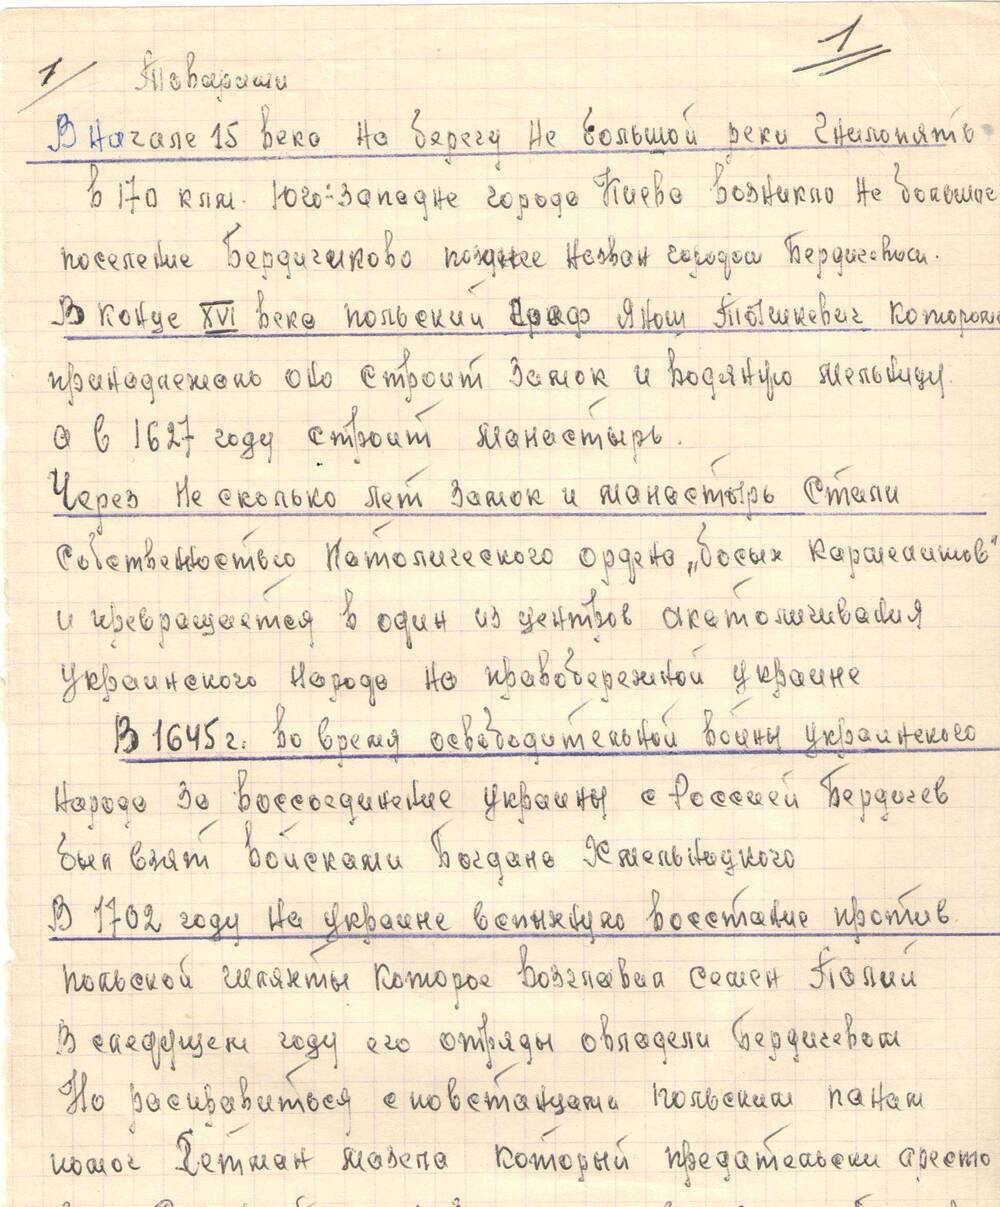 1
1/ Товарищи
В начале 15 века на берегу не большой реки Гнилопять
в 170 клм. Юго-западне города Киева возникло не большое
поселение Бердичиково позднее назван городом Бердичевом.
В конце XVI века польский граф Януш Тышкевич которому
принадлежало оно строит замок и водяную мельницу.
а в 1627 году строит манастырь.
Через не сколько лет замок и манастырь стали
собственностью католического ордена „босых кармелитов"
и превращается в один из центров окатоличивания
украинского народа на правобережной украине
В 1645 г. во время освободительной войны украинского
народа за воссоединение украины с Россией Бердичев
был взят войсками Богдана Хмельницкого
В 1702 году на украине вспыхнуло восстание против
польской шляхты которое возглавил семен Палий
В следущем году его отряды овладели Бердичевом
Но расправиться с повстанцами польским панам
помог Гетман мазепа который предательски аресто